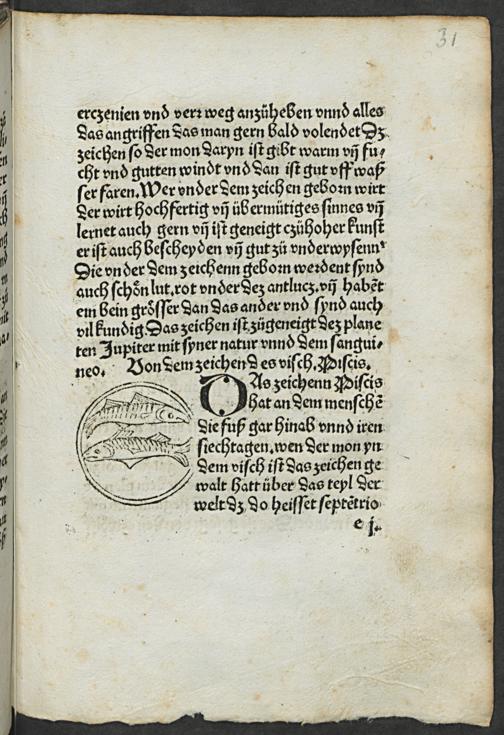 31
erczenien vnd verr weg anzüheben vnnd alles
das angriffen das man gern bald volendet Dz
zeichen so der mon daryn ist gibt warm vñ fu⸗
cht vnd gutten windt vnd dan ist gut vff waß
ser faren. Wer vnder dem zeichen geborn wirt
der wirt hochfertig vñ übermütiges sinnes vñ
lernet auch gern vñ ist geneigt czü hoher kunst
er ist auch bescheyden vñ gut zü vnderwysenn
Die vnder dem zeichenn geborn werdent synd
auch schön lut, rot vnder dez antlucz. vñ habēt
em bein grösser dan das ander vnd synd auch
vil kundig Das zeichen ist zügeneigt dez plane
ten Jupiter mit syner natur vnnd dem sangui⸗
neo. Von dem zeichen des visch. Piscis.
DAs zeichenn Piscis
hat an dem menschē
die fuß gar hinab vnnd iren
siechtagen. wen der mon yn
dem visch ist das zeichen ge
walt hatt über das teyl der
welt dz do heisset septētrio
e j.